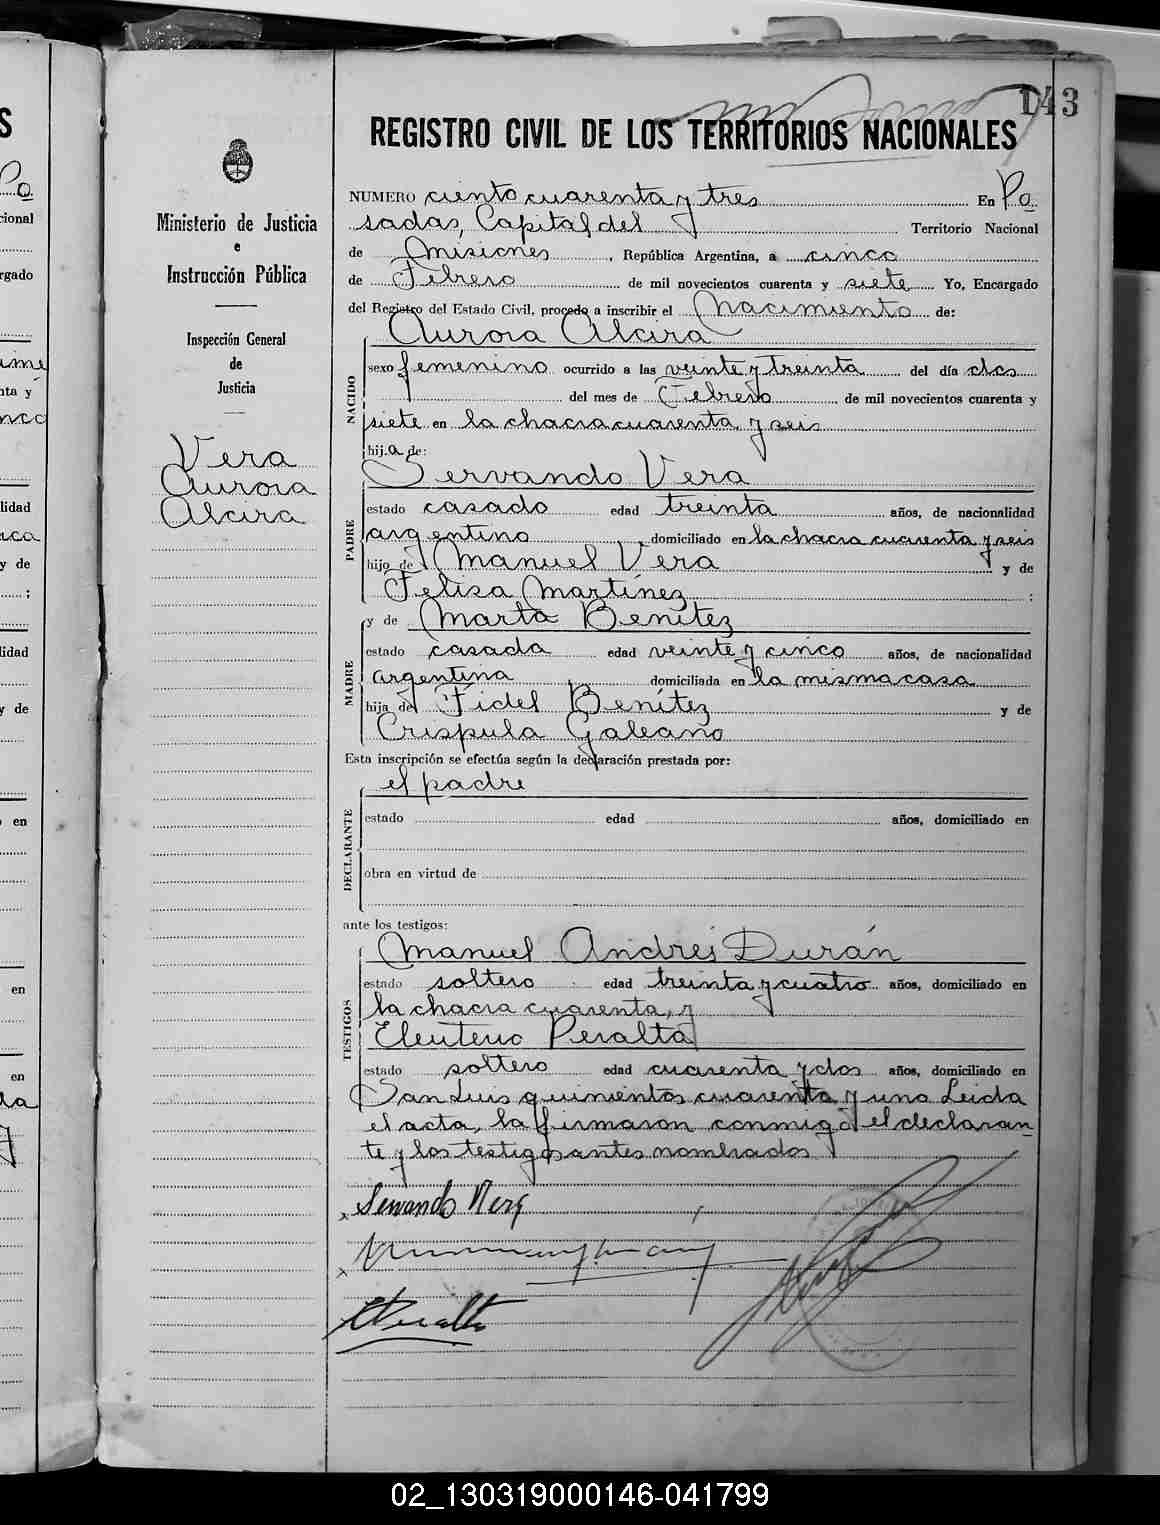 143
REGISTRO CIVIL DE LOS TERRITORIOS NACIONALES
Ministerio de Justicia
e
Instrucción Pública
Inspección General
de
Justicia
Vera
Aurora
Alcira
NUMERO ciento cuarenta y tres En Po
sadas, Capital del Territorio Nacional
de Misiones, República Argentina, a cinco
de Febrero de mil novecientos cuarenta y siete Yo, Encargado
del Registro del Estado Civil, procedo a inscribir el Nacimiento de:
NACIDO
Aurora Alcira
sexo femenino ocurrido a las veinte y treinta del día dos
del mes de Febrero de mil novecientos cuarenta y
siete en la chacra cuarenta y seis
hija de:
PADRE
Servando Vera
estado casado edad treinta años, de nacionalidad
argentino domiciliado en la chacra cuarenta y seis
hijo de Manuel Vera y de
Felisa Martínez :
MADRE
y de Marta Benítez
estado casada edad veinte y cinco años, de nacionalidad
argentina domiciliada en la misma casa
hija de Fidel Benítez y de
Crispula Galeano
Esta inscripción se efectúa según la declaración prestada por:
DECLARANTE
el padre
estado edad años, domiciliado en
obra en virtud de
ante los testigos:
TESTIGOS
Manuel Andrés Durán
estado soltero edad treinta y cuatro años, domiciliado en
la chacra cuarenta, y
Eleuterio Peralta
estado soltero edad cuarenta y dos años, domiciliado en
San Luis quinientos cuarenta y uno Leida
el acta, la firmaron conmigo el declaran-
te y los testigos antes nombrados
Servando Vera
EPeralta
02_130319000146-041799